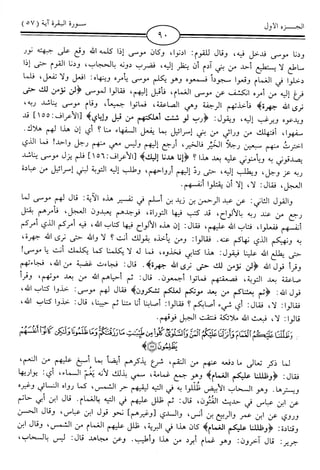 الجــزء الأول
٩٠
سورة البقرة آية (٥٧)
ودنا موسى فدخل فيه، وقال للقوم: ادنوا، وكان موسى إذا كلمه الله وقع على جبهته نور
ساطع لا يستطيع أحد من بني آدم أن ينظر إليه، فضرب دونه بالحجاب، ودنا القوم حتى إذا
دخلوا في الغمام وقعوا سجوداً فسمعوه وهو يكلم موسى يأمره وينهاه: افعل ولا تفعل، فلما
فرغ إليه من أمره انكشف عن موسى الغمام، فأقبل إليهم، فقالوا لموسى ﴿لن نؤمن لك حتى
نرى الله جهرة﴾ فأخذتهم الرجفة وهي الصاعقة، فماتوا جميعاً، وقام موسى يناشد ربه،
ويدعوه ويرغب إليه، ويقول: ﴿رب لو شئت أهلكتهم من قبل وإياي﴾ [الأعراف: ١٥٥] قد
سفهوا، أفتهلك من ورائي من بني إسرائيل بما يفعل السفهاء منا؟ أي إن هذا لهم هلاك.
اخترتُ منهم سبعين رجلاً الخيّر فالخير، أرجع إليهم وليس معي منهم رجل واحد! فما الذي
يصدقوني به ويأمنوني عليه بعد هذا؟ ﴿إنا هدنا إليك﴾ [الأعراف: ١٥٦] فلم يزل موسى يناشد
ربه عز وجل، ويطلب إليه، حتى ردّ إليهم أرواحهم، وطلب إليه التوبة لبني إسرائيل من عبادة
العجل، فقال: لا، إلا أن يقتلوا أنفسهم.
والقول الثاني: عن عبد الرحمن بن زيد بن أسلم في تفسير هذه الآية: قال لهم موسى لما
رجع من عند ربه بالألواح، قد كتب فيها التوراة، فوجدهم يعبدون العجل، فأمرهم بقتل
أنفسهم ففعلوا، فتاب الله عليهم، فقال: إن هذه الألواح فيها كتاب الله، فيه أمركم الذي أمركم
به ونهيكم الذي نهاكم عنه. فقالوا: ومن يأخذه بقولك أنت؟ لا والله حتى نرى الله جهرة،
حتى يطلع الله علينا فيقول: هذا كتابي فخذوه، فما له لا يكلمنا كما يكلمك أنت يا موسى!
وقرأ قول الله ﴿لن نؤمن لك حتى نرى الله جهرة﴾. قال: فجاءت غضبة من الله، فجاءتهم
صاعقة بعد التوبة، فصعقتهم فماتوا أجمعون. قال: ثم أحياهم الله من بعد موتهم، وقرأ
قول الله: ﴿ثم بعثناكم من بعد موتكم لعلكم تشكرون﴾ فقال لهم موسى: خذوا كتاب الله،
فقالوا: لا، فقال: أي شيء أصابكم؟ فقالوا: أصابنا أنا متنا ثم حيينا، قال: خذوا كتاب الله،
قالوا: لا، فبعث الله ملائكة فنتقت الجبل فوقهم.
وَظَلَّلْنَا عَلَيْكُمُ الْغَمَامَ وَأَنزَلْنَا عَلَيْكُمُ الْمَنَّ وَالسَّلْوَىٰ كُلُوا مِن طَيِّبَاتِ مَا رَزَقْنَاكُمْ وَمَا ظَلَمُونَا وَلَٰكِن كَانُوا أَنفُسَهُمْ
يَظْلِمُونَ
لما ذكر تعالى ما دفعه عنهم من النقم، شرع يذكرهم أيضاً بما أسبغ عليهم من النعم،
فقال: ﴿وظللنا عليكم الغمام﴾ وهو جمع غمامة، سمي بذلك لأنه يَغُمّ السماء، أي: يواريها
ويسترها. وهو السحاب الأبيض ظُلّلوا به في التيه ليقيهم حر الشمس، كما رواه النسائي وغيره
عن ابن عباس في حديث الفُتُون، قال: ثم ظلل عليهم في التيه بالغمام. قال ابن أبي حاتم
وروى عن ابن عمر والربيع بن أنس، والسدي [وغيرهم] نحو قول ابن عباس، وقال الحسن
وقتادة: ﴿وظللنا عليكم الغمام﴾ كان هذا في البرية، ظلل عليهم الغمام من الشمس، وقال ابن
جرير: قال آخرون: وهو غمام أبرد من هذا وأطيب. وعن مجاهد قال: ليس بالسحاب،